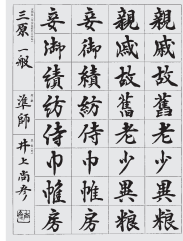 親戚故舊老少異粮
親戚故舊老少異粮
妾御績紡侍巾帷房
妾御績紡侍巾帷房
三原 一般 準師 井上尚彦